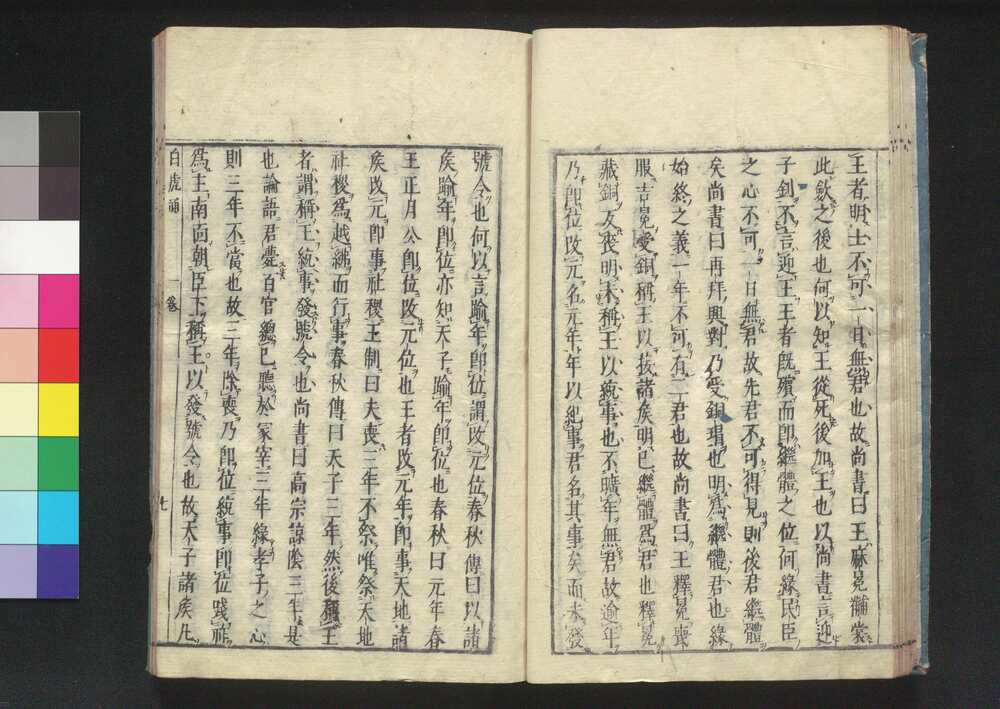 王者明士不可一日無君也故尚書曰王麻冕黼裳
此歛之後也何以知王從死後加王也以尚書言迎
子釗不言迎王王者既殯而即繼體之位何緣民臣
之心不可一日無君故先君不可得見則後君繼體
矣尚書曰再拜興對乃受銅瑁也明為繼體君也緣
始終之義一年不可有二君也故尚書曰王釋冕喪
服吉冕受銅稱王以接諸矦明已繼體為君也釋冕
藏銅反喪明未稱王以統事也不曠年無君故逾年
乃即位改元名元年年以紀事君名其事矣而未發
號令也何以言踰年即位謂改元位春秋傳曰以諸
矦踰年即位亦知天子踰年即位也春秋曰元年春
王正月公即位改元位也王者改元年即事天地諸
矦改元即事社稷王制曰夫喪三年不祭唯祭天地
社稷為越紼而行事春秋傳曰天子三年然後稱王
者謂稱王統事發號令也尚書曰高宗諒陰三年是
也論語君薨百官總已聽於冢宰三年緣孝子之心
則三年不當也故三年除喪乃即位統事即位踐祚
為主南面朝臣下稱王以發號令也故天子諸矦凡
白虎通 一卷 七